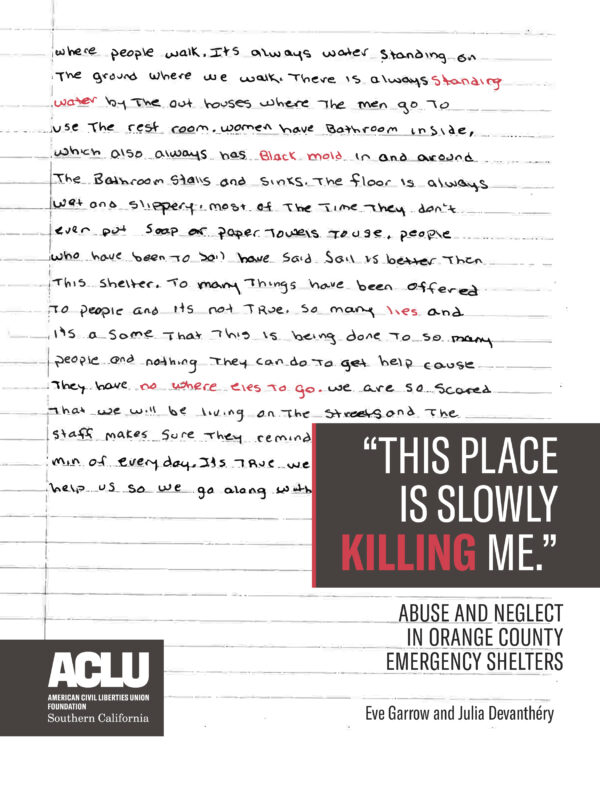 where people walk. Its always water standing on
The ground where we walk. There is always standing
water by The out houses where The men go To
use The rest room. women have Bathroom inside,
which also always has Black mold in and around
The Bathroom stalls and sinks. The floor is always
wet and slippery. most of The Time They don't
ever put soap or paper Towels To use. people
who have been To Jail have said Jail is better Then
This shelter. To many Things have been offered
To people and its not TRue. so many lies and
it's a some That This is being done To so many
people and nothing They can do To get help cause
They have no where eles To go. we are so scared
That we will be living on The streets and The
staff makes sure They remind
min of every day. Its TRue we
help us so we go along with
“THIS PLACE
IS SLOWLY
KILLING ME.”
ABUSE AND NEGLECT
IN ORANGE COUNTY
EMERGENCY SHELTERS
Eve Garrow and Julia Devanthéry
ACLU
AMERICAN CIVIL LIBERTIES UNION
FOUNDATION
Southern California